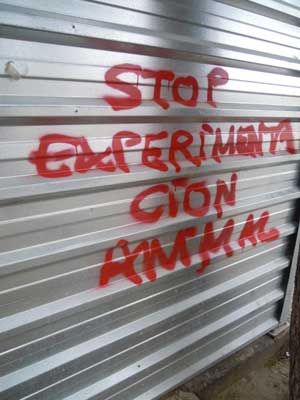 STOP
EXPERIMENTA
CION
ANIMAL